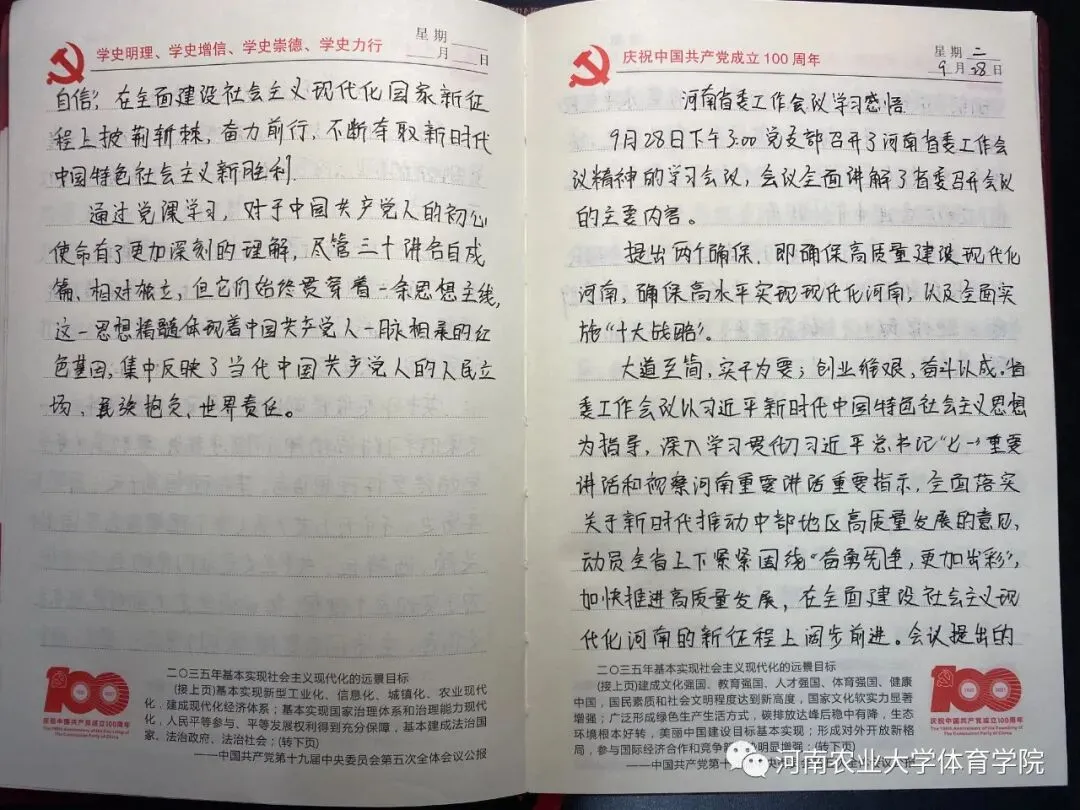 学史明理、学史增信、学史崇德、学史力行
星期
月 日
自信，在全面建设社会主义现代化国家新征
程上披荆斩棘，奋力前行，不断夺取新时代
中国特色社会主义新胜利.
通过党课学习，对于中国共产党人的初心
使命有了更加深刻的理解，尽管三十讲各自成
篇、相对独立，但它们始终贯穿着一条思想主线，
这一思想精髓体现着中国共产党人一脉相承的红
色基因，集中反映了当代中国共产党人的人民立
场、民族抱负、世界责任。
100
庆祝中国共产党成立100周年
The 100th Anniversary of the Founding of
The Communist Party of China
二〇三五年基本实现社会主义现代化的远景目标
(接上页)基本实现新型工业化、信息化、城镇化、农业现代
化，建成现代化经济体系；基本实现国家治理体系和治理能力现代
化，人民平等参与、平等发展权利得到充分保障，基本建成法治国
家、法治政府、法治社会；(转下页)
——中国共产党第十九届中央委员会第五次全体会议公报
庆祝中国共产党成立100周年
星期 二
9月28日
河南省委工作会议学习感悟
9月28日下午3:00党支部召开了河南省委工作会
议精神的学习会议，会议全面讲解了省委召开会议
的主要内容。
提出两个确保，即确保高质量建设现代化
河南，确保高水平实现现代化河南，以及全面实
施“十大战略”。
大道至简，实干为要；创业维艰，奋斗以成。省
委工作会议以习近平新时代中国特色社会主义思想
为指导，深入学习贯彻习近平总书记“七一”重要
讲话和视察河南重要讲话重要指示，全面落实
关于新时代推动中部地区高质量发展的意见，
动员全省上下紧紧围绕“奋勇争先，更加出彩”，
加快推进高质量发展，在全面建设社会主义现
代化河南的新征程上阔步前进。会议提出的
二〇三五年基本实现社会主义现代化的远景目标
(接上页)建成文化强国、教育强国、人才强国、体育强国、健康
中国，国民素质和社会文明程度达到新高度，国家文化软实力显著
增强；广泛形成绿色生产生活方式，碳排放达峰后稳中有降，生态
环境根本好转，美丽中国建设目标基本实现；形成对外开放新格
局，参与国际经济合作和竞争新 明显增强；(转下页)
——中国共产党第十九
100
庆祝中国共产党成立100周年
The 100th Anniversary of the Founding of
The Communist Party of China
河南农业大学体育学院